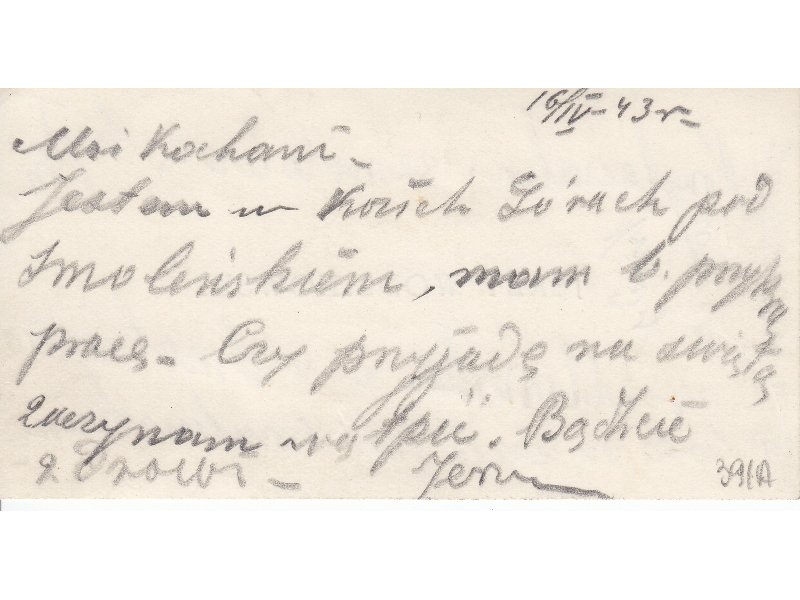 16/IV-43 r-
Moi Kochani-
Jestem w Kozich Górach pod
Smoleńskiem, mam b. przykrą
pracę - Czy przyjadę na święta
zaczynam wątpić. Bądźcie
zdrowi - Jerzy
391A